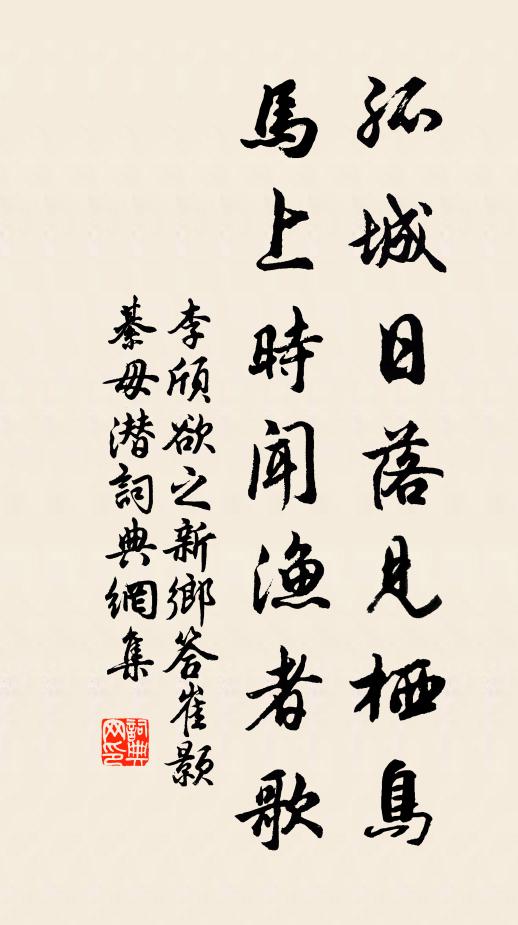 孤城日落見栖鳥
馬上時聞漁者歌
李頎欲之新鄉答崔顥
綦毋潛詞典網集
詞典
网印